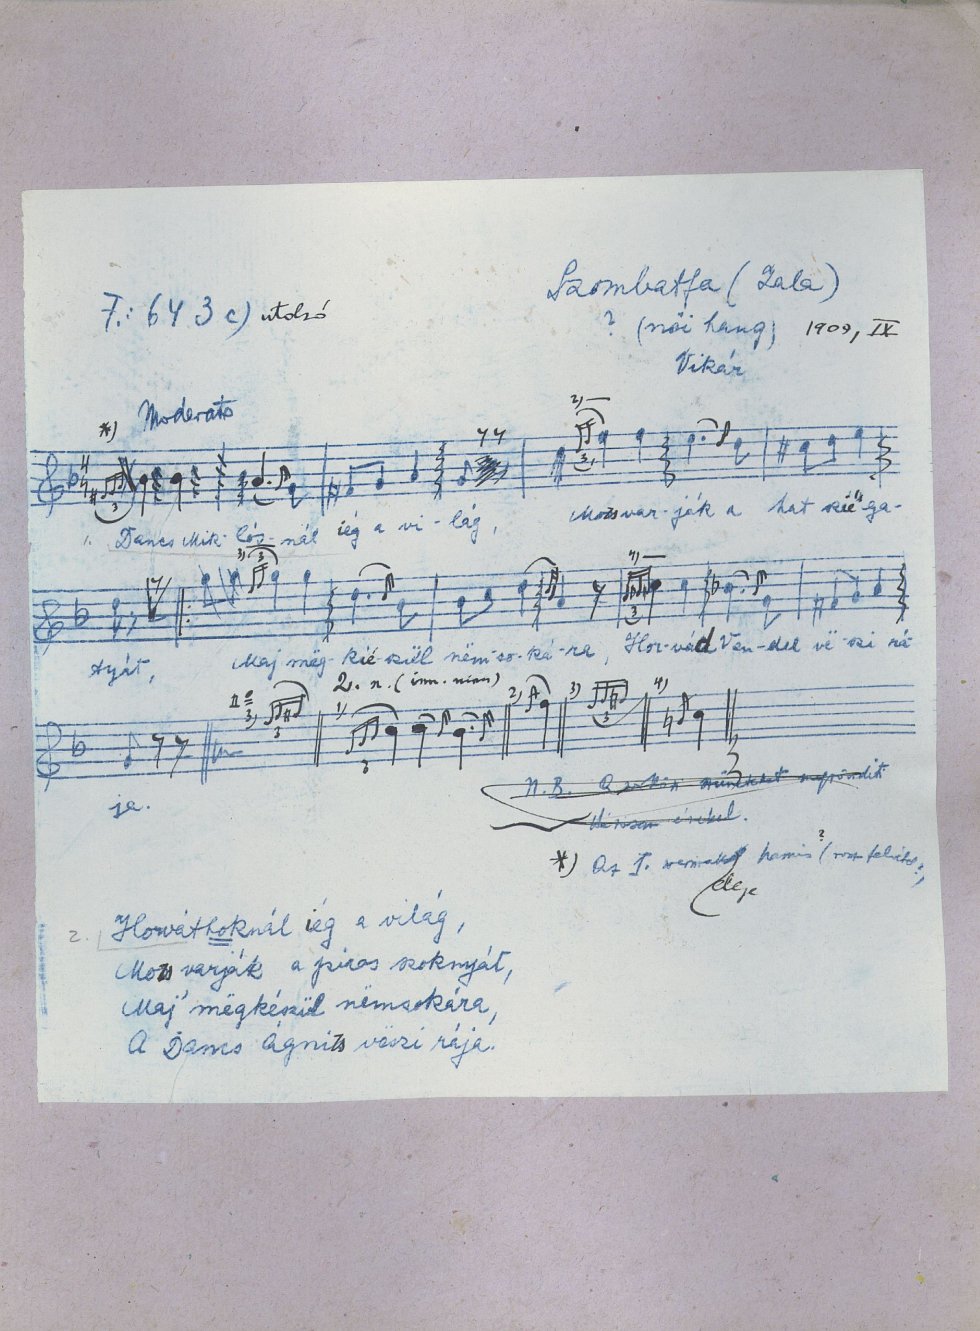 F.: 643 c) utolsó
Szombatfa (Zala)
? (női hang) 1909, IX
Vikár
Moderato
*)
2)
3
3
Dancs Mik-lós-nál iég a vi-lág, Mozsvar-ják a hat szié-ga-
3) 3
4)
3
atyát, Maj mëg-kié-szül nëm-so-ká-ra, Hor-vád Ven-del vë-szi rá
3) 3
2. n. (inn. ninn)
1) 3
2)
3) 3
4)
ja.
N.B.
*) Az I. hamis?
eleje
2. Horváthoknál iég a világ,
Mozsvarják a piros szoknyát,
Maj mëgkészül nëmsokára,
A Dancs Ágnits vëszi rája.